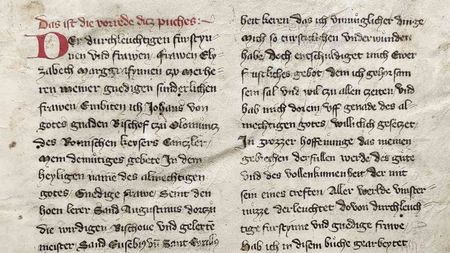 Das ist die vorrede diz puches:
Der durchleuchtigen furstyn
nen und frawen, frawen Ely
zabeth Marggrafynnen zu Merhe
ren meiner gnedigen sunderlichen
frawen Embiten ich Johans von
gotes gnaden Bischof zu Olomuncz
des Romischen keysers Canczler
Mein demutiges gebete In dem
heyligen name des almechtigen
gotes Gnedige frawe Seint den
hoen lerer Sand Augustinus dorczu
die wirdigen Bischove und gelerte
meister Sand Eusebius vnd Sant Cyrillus
beit keren das ich unmuglicher dinge
Mich so turstichlichen underwunden
habe doch entschuldiget mich Ewer
furstliches gebot dem ich gehorsam
sein sal und wil zu allen zeiten und
hab mich dorein uf genade des al
mechtigen gotes willichlich geseczet
In grozzer hoffenunge das meinen
gebrechen derfullen werde des gute
und des vollenkumenheit der mit
sein eines treften Aller werlde vinster
nizze derleuchtet dovon durchleuch
tige furstynne und gnedige frawe
Hab ich in disem buche gearbeytet